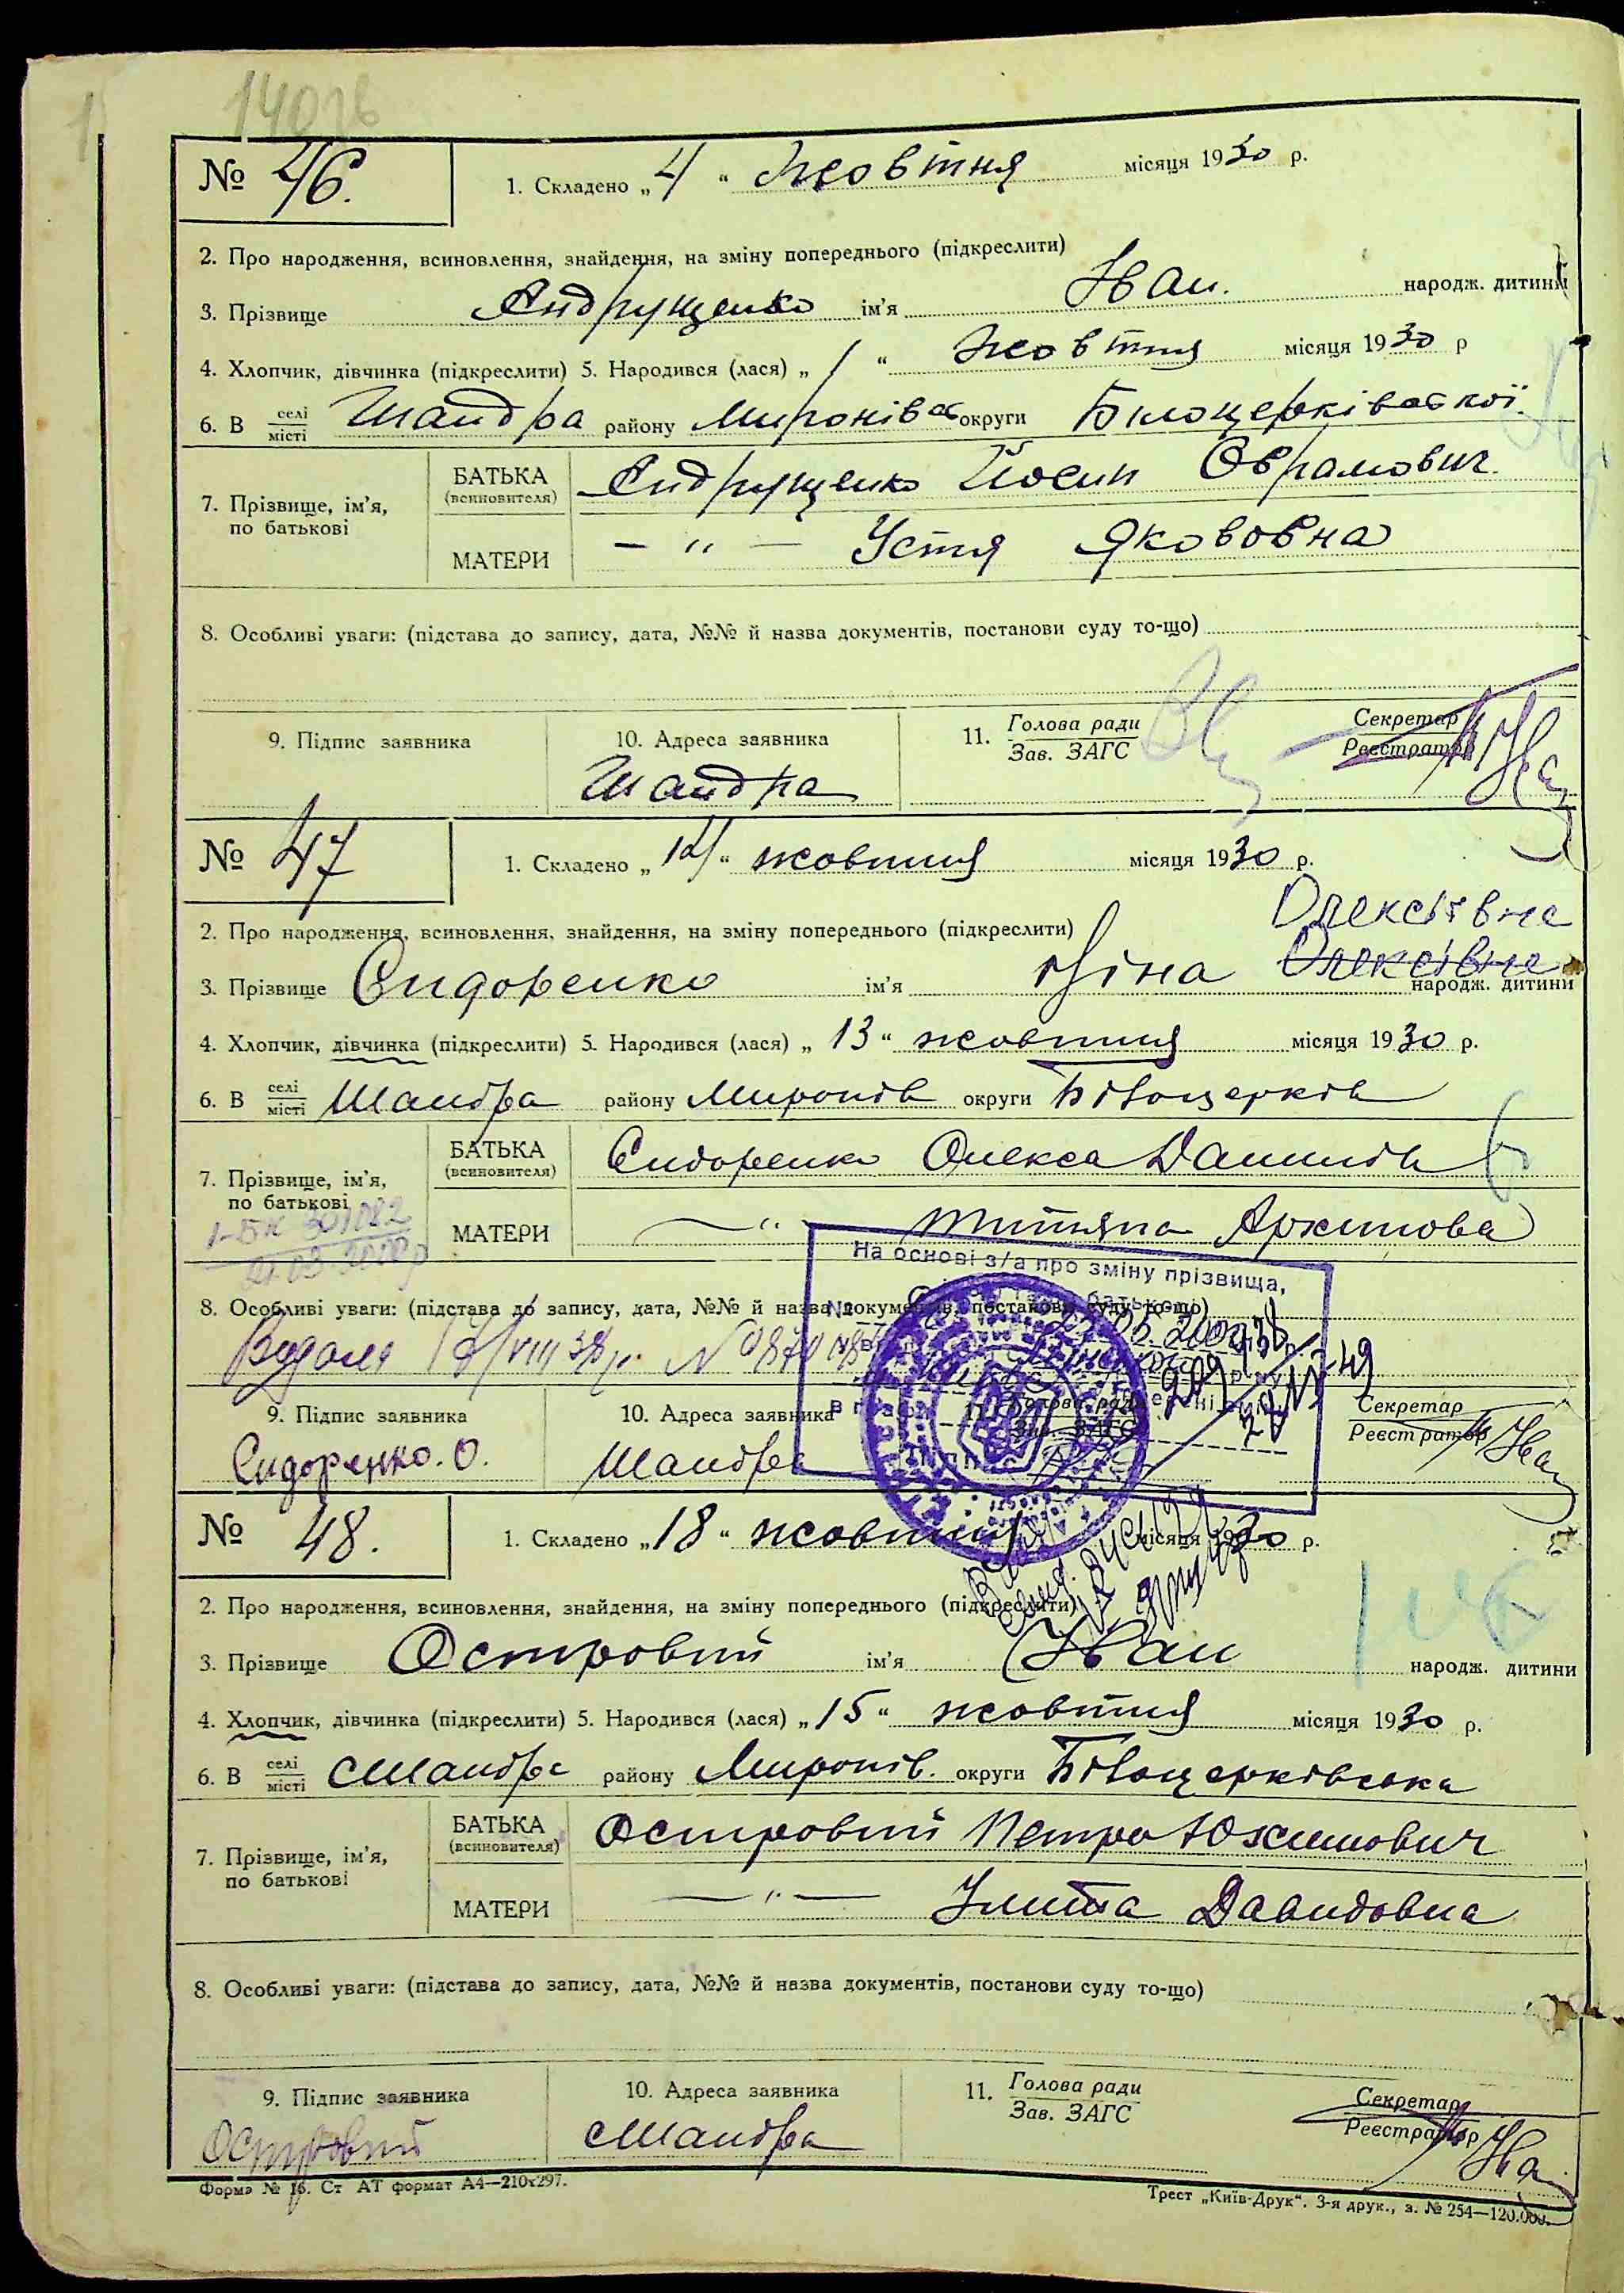 14026
№ 46. 1. Складено „4“ жовтня місяця 1930 р.
2. Про народження, всиновлення, знайдення, на зміну попереднього (підкреслити)
3. Прізвище Андрущенко ім'я Іван. народж. дитини
4. Хлопчик, дівчинка (підкреслити) 5. Народився (лася) „1“ жовтня місяця 1930 р
6. В селі/місті Шандра району Миронівс округи Білоцерківської.
7. Прізвище, ім'я, по батькові БАТЬКА (всиновителя) Андрущенко Йосип Оврамович.
МАТЕРИ — " — Устя Яковōвна
8. Особливі уваги: (підстава до запису, дата, №№ й назва документів, постанови суду то-що)
9. Підпис заявника 10. Адреса заявника 11. Голова ради/Зав. ЗАГС Секретар/Реєстратор
Шандра
№ 47 1. Складено „14“ жовтня місяця 1930 р.
Олексіївна
2. Про народження, всиновлення, знайдення, на зміну попереднього (підкреслити)
3. Прізвище Сидоренко ім'я Ніна Олексівна народж. дитини
4. Хлопчик, дівчинка (підкреслити) 5. Народився (лася) „13“ жовтня місяця 1930 р.
6. В селі/місті Шандра району Миронів округи Білоцерків
7. Прізвище, ім'я, по батькові БАТЬКА (всиновителя) Сидоренко Олекса Данилів
МАТЕРИ — " Титяна Архипова
На основі з/а про зміну прізвища,
8. Особливі уваги: (підстава до запису, дата, №№ й назва документів, постанови суду то-що)
9. Підпис заявника 10. Адреса заявника 11. Голова ради/Зав. ЗАГС Секретар/Реєстратор
Сидоренко. О. Шандра
№ 48. 1. Складено „18“ жовтня місяця 1930 р.
2. Про народження, всиновлення, знайдення, на зміну попереднього (підкреслити)
3. Прізвище Островий ім'я Іван народж. дитини
4. Хлопчик, дівчинка (підкреслити) 5. Народився (лася) „15“ жовтня місяця 1930 р.
6. В селі/місті Шандра району Миронів. округи Білоцерківська
7. Прізвище, ім'я, по батькові БАТЬКА (всиновителя) Островий Петро Юхимович
МАТЕРИ — " — Улита Давидовна
8. Особливі уваги: (підстава до запису, дата, №№ й назва документів, постанови суду то-що)
9. Підпис заявника 10. Адреса заявника 11. Голова ради/Зав. ЗАГС Секретар/Реєстратор
Островий Шандра
Форма № 16. Ст АТ формат А4—210х297. Трест „Київ-Друк“. 3-я друк., з. № 254—120.000.